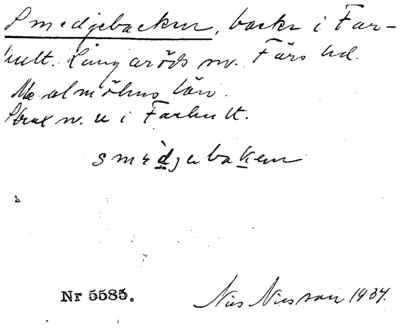 Smedjebacken, backe i Far-
hult. Långaröds sn. Färs hd.
Malmöhus län.
Strax n. u i Farhult.
smèdjebaken
Nr 5585.
Nils Nilsson 1934.